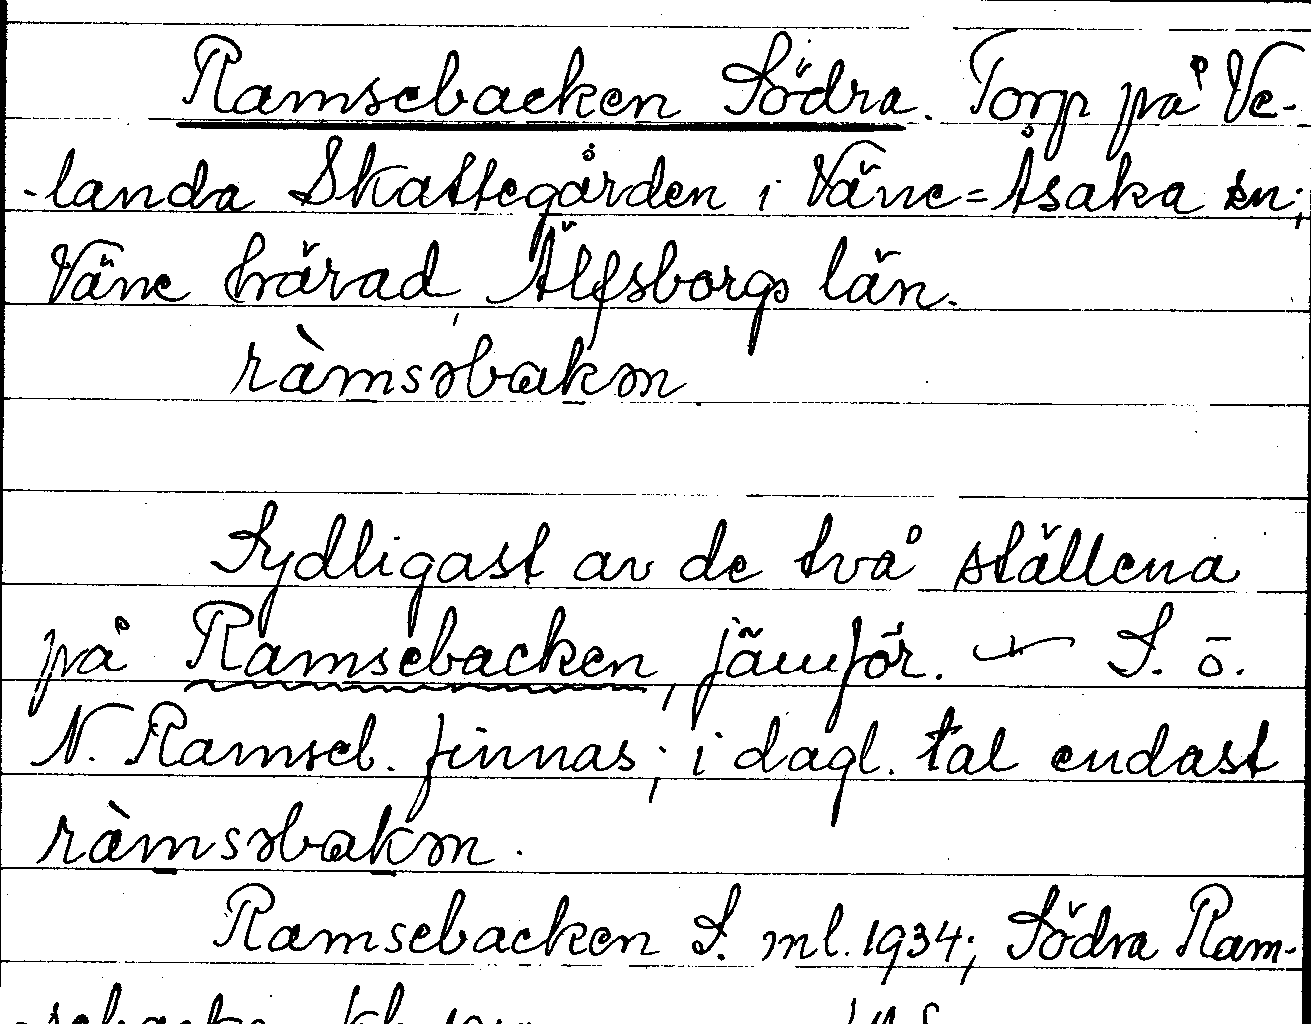 Ramsebacken Södra. Torp på Ve-
-landa Skattegården i Väne=Åsaka sn;
Väne härad, Älfsborgs län.
ràmsəbakən
Sydligast av de två ställena
på Ramsebacken, jämför. S. o.
N. Ramseb. finnas; i dagl. tal endast
ràmsəbakən.
Ramsebacken S. ml. 1934; Södra Ram-